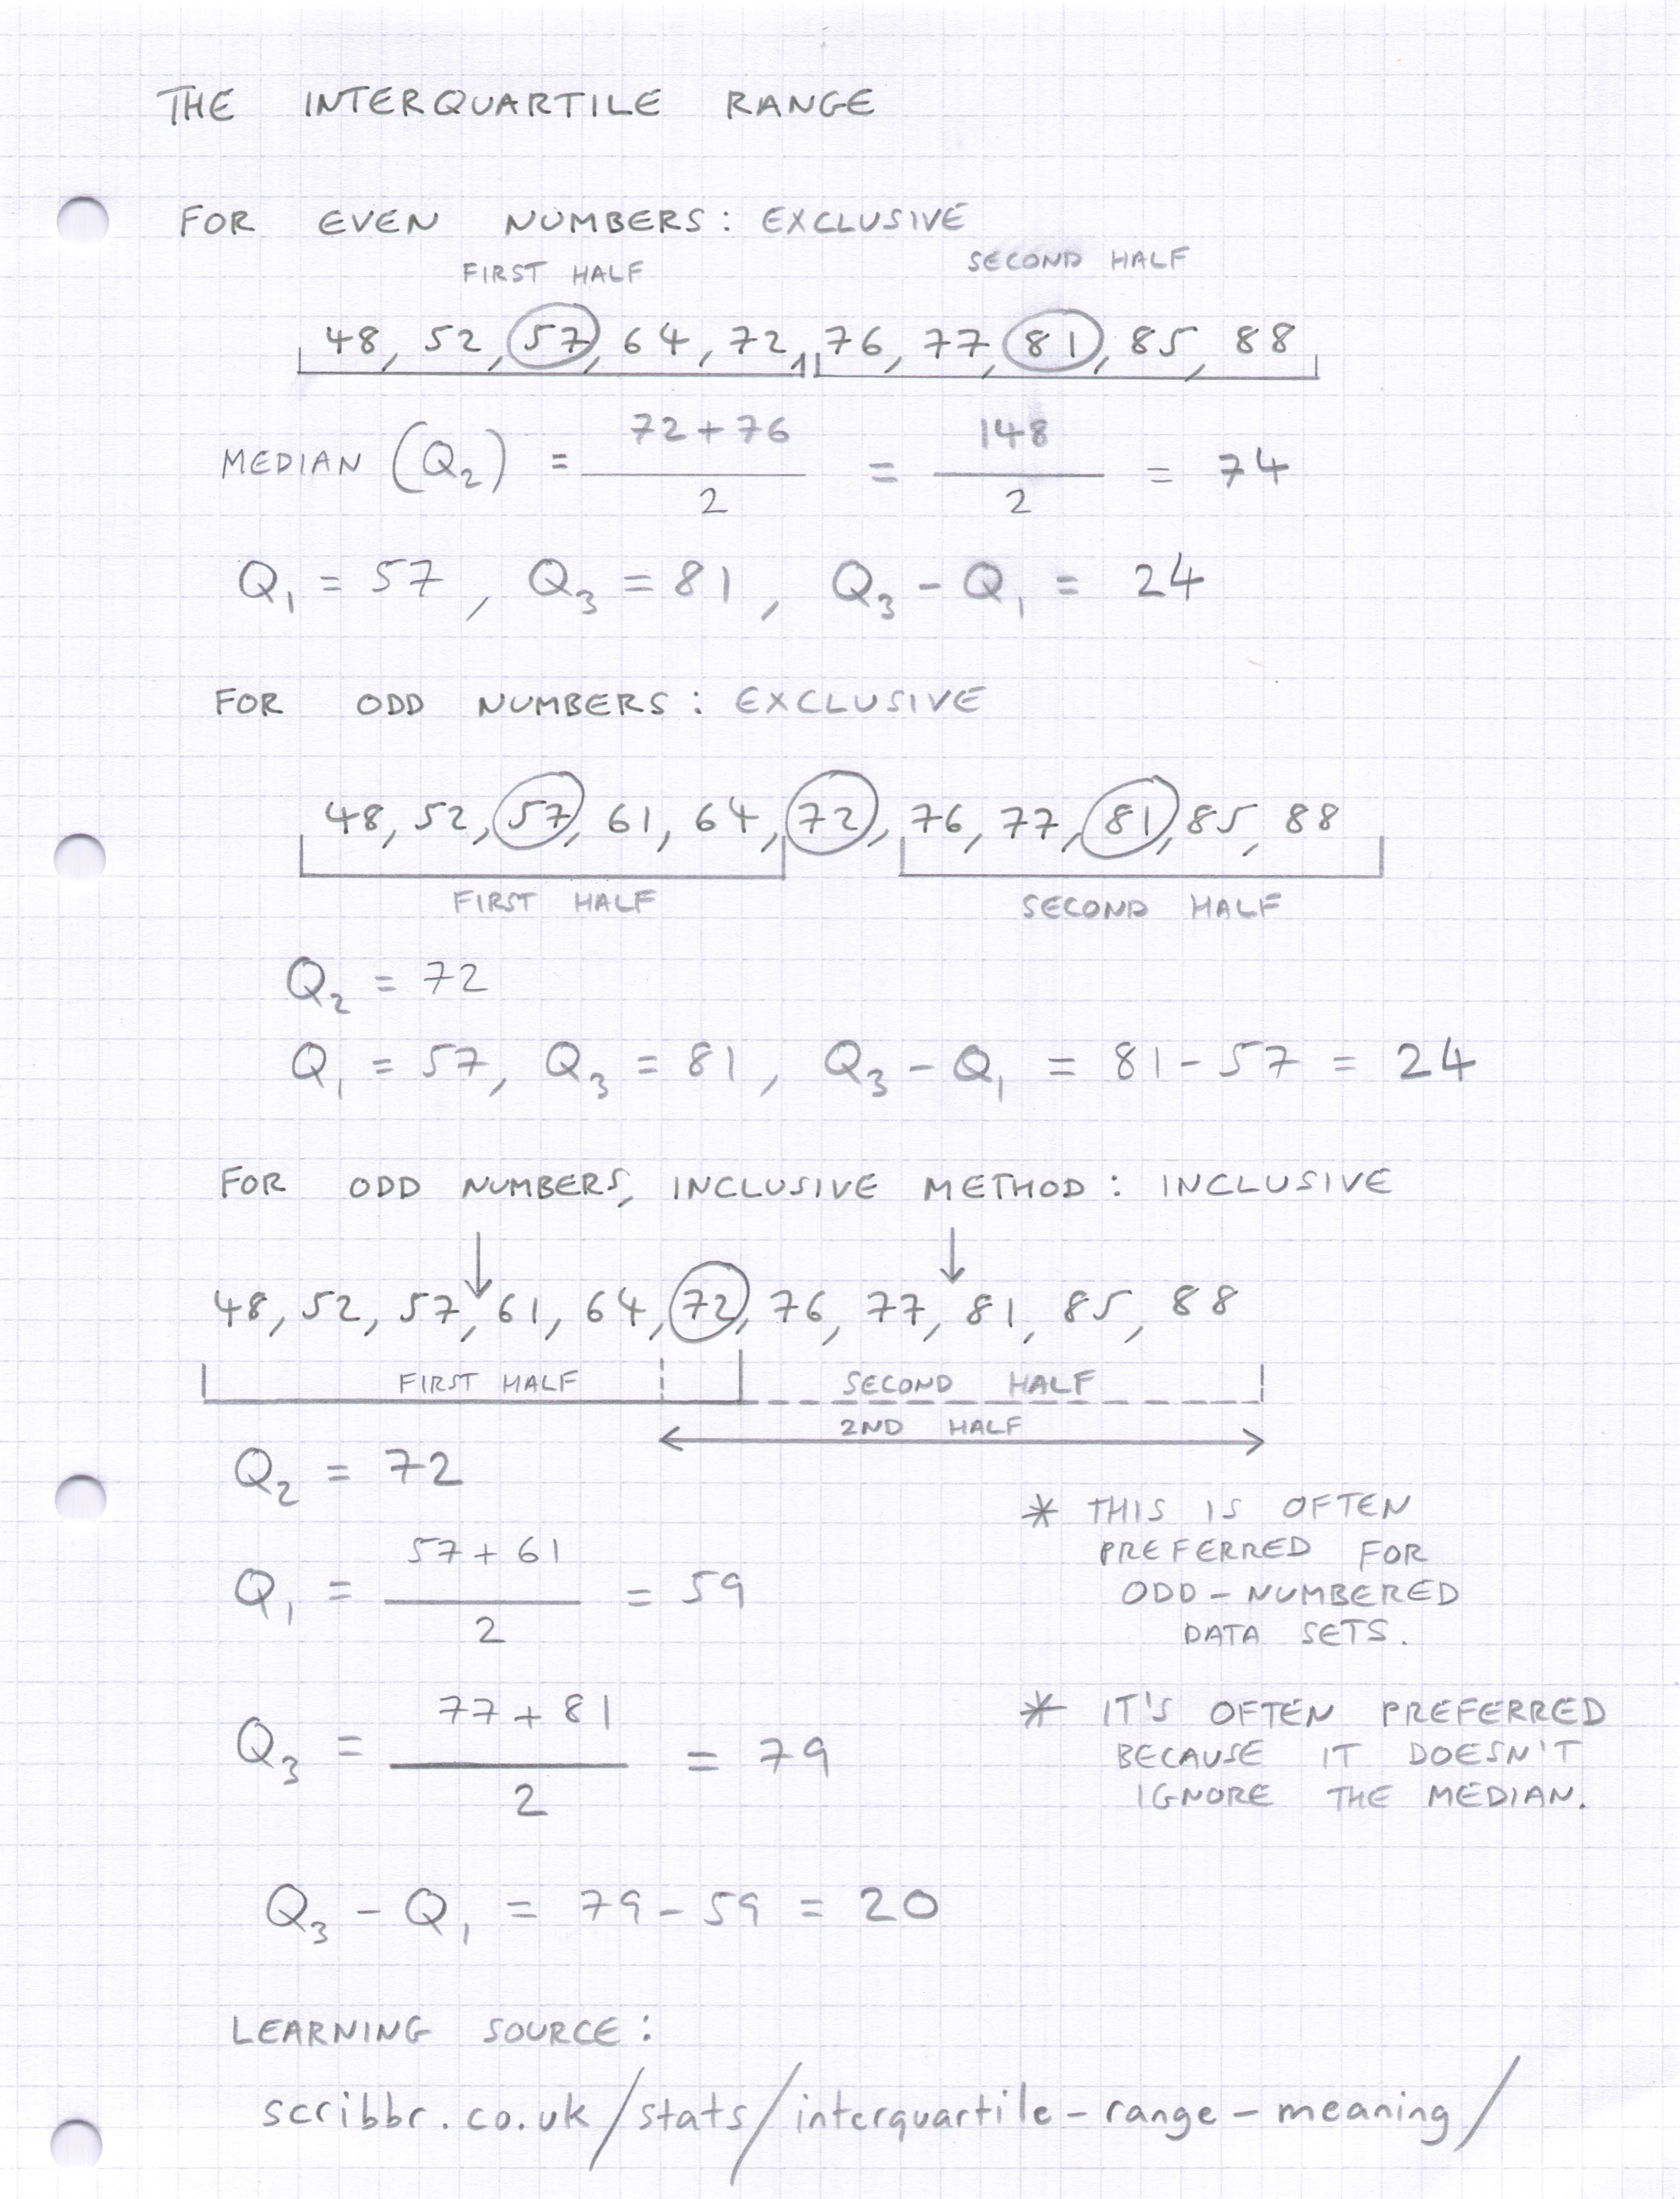 THE INTERQUARTILE RANGE
FOR EVEN NUMBERS: EXCLUSIVE
FIRST HALF SECOND HALF
48, 52, 57, 64, 72, 76, 77, 81, 85, 88
MEDIAN (Q₂) = (72 + 76)/2 = 148/2 = 74
Q₁ = 57, Q₃ = 81, Q₃ - Q₁ = 24
FOR ODD NUMBERS: EXCLUSIVE
48, 52, 57, 61, 64, 72, 76, 77, 81, 85, 88
FIRST HALF SECOND HALF
Q₂ = 72
Q₁ = 57, Q₃ = 81, Q₃ - Q₁ = 81 - 57 = 24
FOR ODD NUMBERS, INCLUSIVE METHOD: INCLUSIVE
48, 52, 57, 61, 64, 72, 76, 77, 81, 85, 88
FIRST HALF SECOND HALF
2ND HALF
Q₂ = 72
Q₁ = (57 + 61)/2 = 59
* THIS IS OFTEN
PREFERRED FOR
ODD-NUMBERED
DATA SETS.
Q₃ = (77 + 81)/2 = 79
* IT'S OFTEN PREFERRED
BECAUSE IT DOESN'T
IGNORE THE MEDIAN.
Q₃ - Q₁ = 79 - 59 = 20
LEARNING SOURCE:
scribbr.co.uk/stats/interquartile-range-meaning/